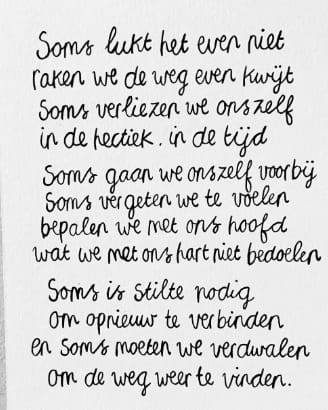 Soms lukt het even niet
raken we de weg even kwijt
Soms verliezen we onszelf
in de hectiek. in de tijd
Soms gaan we onszelf voorbij
Soms vergeten we te voelen
bepalen we met ons hoofd
wat we met ons hart niet bedoelen
Soms is stilte nodig
om opnieuw te verbinden
en soms moeten we verdwalen
om de weg weer te vinden.